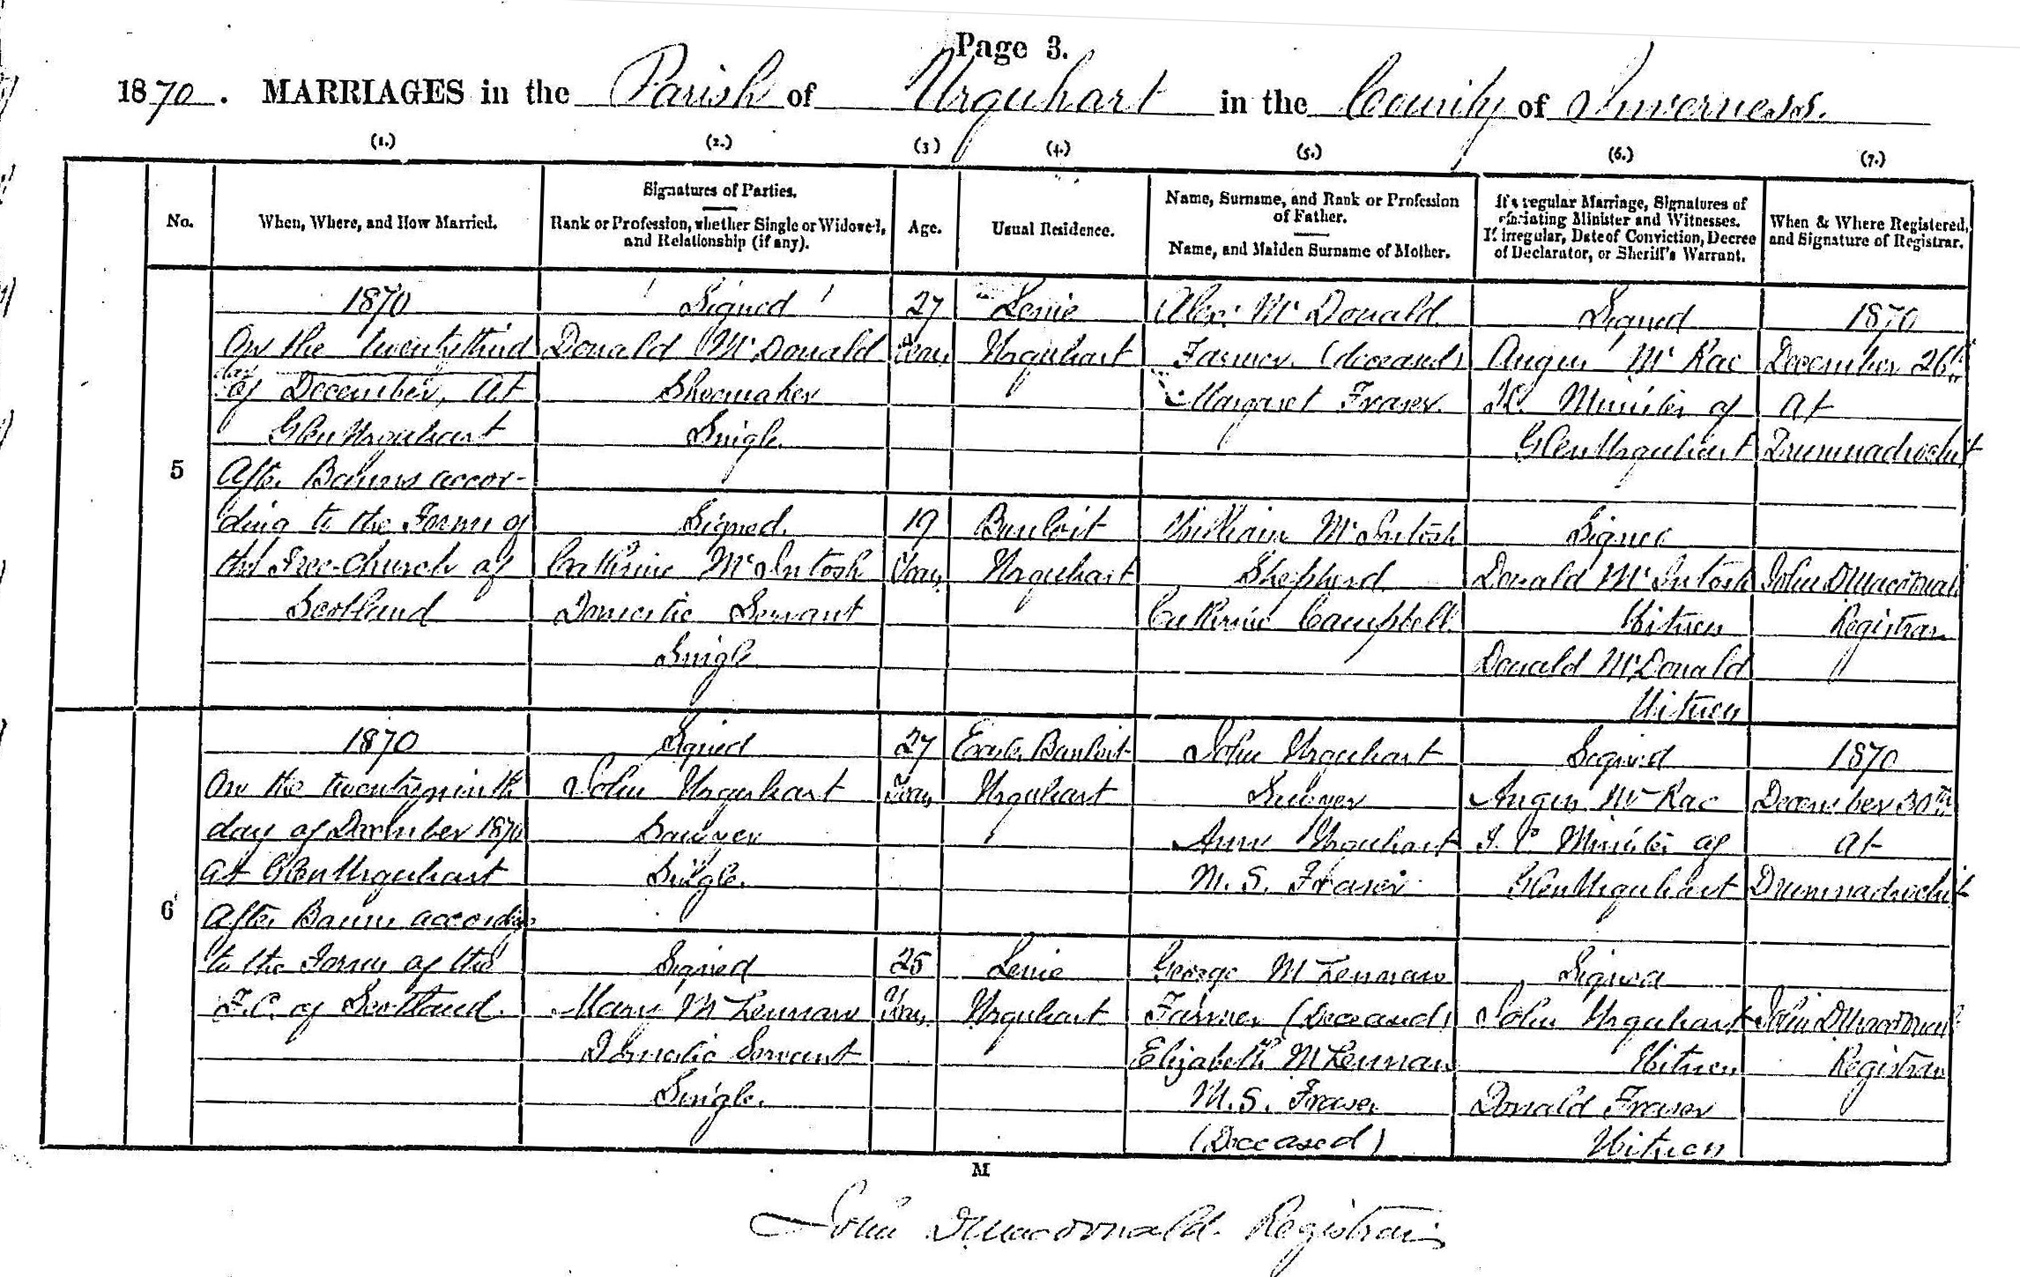 Page 3.
1870. MARRIAGES in the Parish of Urquhart in the County of Inverness.
(1.) (2.) (3) (4.) (5.) (6.) (7.)
No.
When, Where, and How Married.
Signatures of Parties.
Rank or Profession, whether Single or Widowed,
and Relationship (if any).
Age.
Usual Residence.
Name, Surname, and Rank or Profession
of Father.
Name, and Maiden Surname of Mother.
If a regular Marriage, Signatures of
officiating Minister and Witnesses.
If irregular, Date of Conviction, Decree
of Declarator, or Sheriff's Warrant.
When & Where Registered,
and Signature of Registrar.
5
1870
On the twentythird
day
of December, At
GlenUrquhart
After Banns accor-
ding to the Forms of
the Free Church of
Scotland
Signed
Donald McDonald
Shoemaker
Single
Signed
Catherine McIntosh
Domestic Servant
Single
27
Years
19
Years
Lenie
Urquhart
Bunloit
Urquhart
Alexr McDonald
Farmer (deceased)
Margaret Fraser
William McIntosh
Shepherd
Catherine Campbell
Signed
Angus McRae
F.C. Minister of
GlenUrquhart
Signed
Donald McIntosh
Witness
Donald McDonald
Witness
1870
December 26th
At
Drumnadrochit
John D Macdonald
Registrar
6
1870
On the twentyninth
day of December 1870
At GlenUrquhart
After Banns according
to the Forms of the
F.C. of Scotland.
Signed
John Urquhart
Sawyer
Single.
Signed
Mary McLennan
Domestic Servant
Single.
27
Years
25
Years
Bunloit
Urquhart
Lenie
Urquhart
John Urquhart
Anne Urquhart
M.S. Fraser
George McLennan
Farmer (Deceased)
Elizabeth McLennan
M.S. Fraser
(Deceased)
Signed
Angus McRae
F.C. Minister of
GlenUrquhart
Signed
John Urquhart
Witness
Donald Fraser
Witness
1870
December 30th
At
Drumnadrochit
John D Macdonald
Registrar
M
John D Macdonald. Registrar